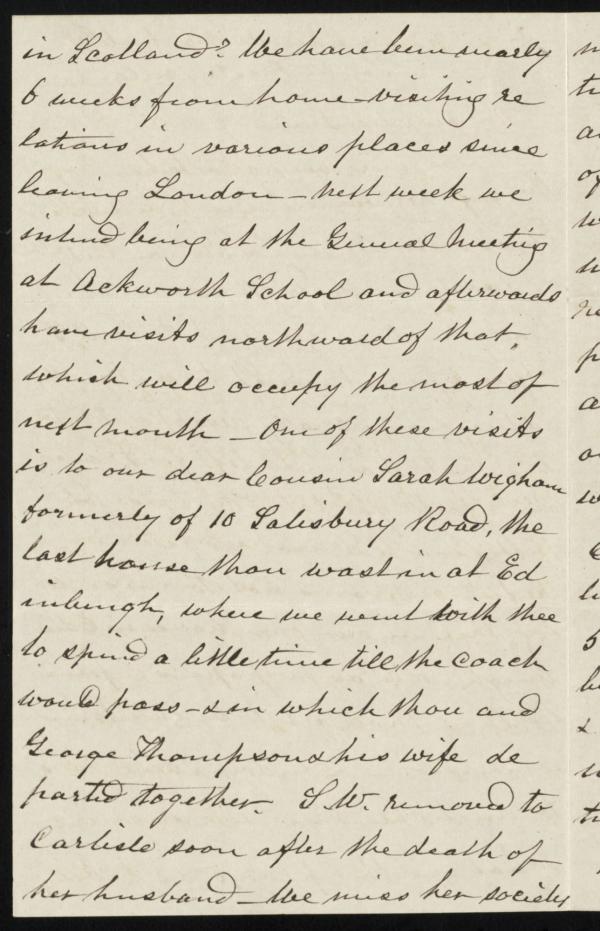 in Scotland? We have been nearly
6 weeks from home - visiting re
lations in various places since
leaving London - next week we
intend being at the General Meeting
at Ackworth School and afterwards
have visits northward of that,
which will occupy the most of
next month - One of these visits
is to our dear Cousin Sarah Wigham
formerly of 10 Salisbury Road, the
last house thou wast in at Ed
inburgh, where we went with thee
to spend a little time till the coach
would pass - & in which thou and
George Thompson & his wife de
parted together. S. W. removed to
Carlisle soon after the death of
her husband - We miss her society